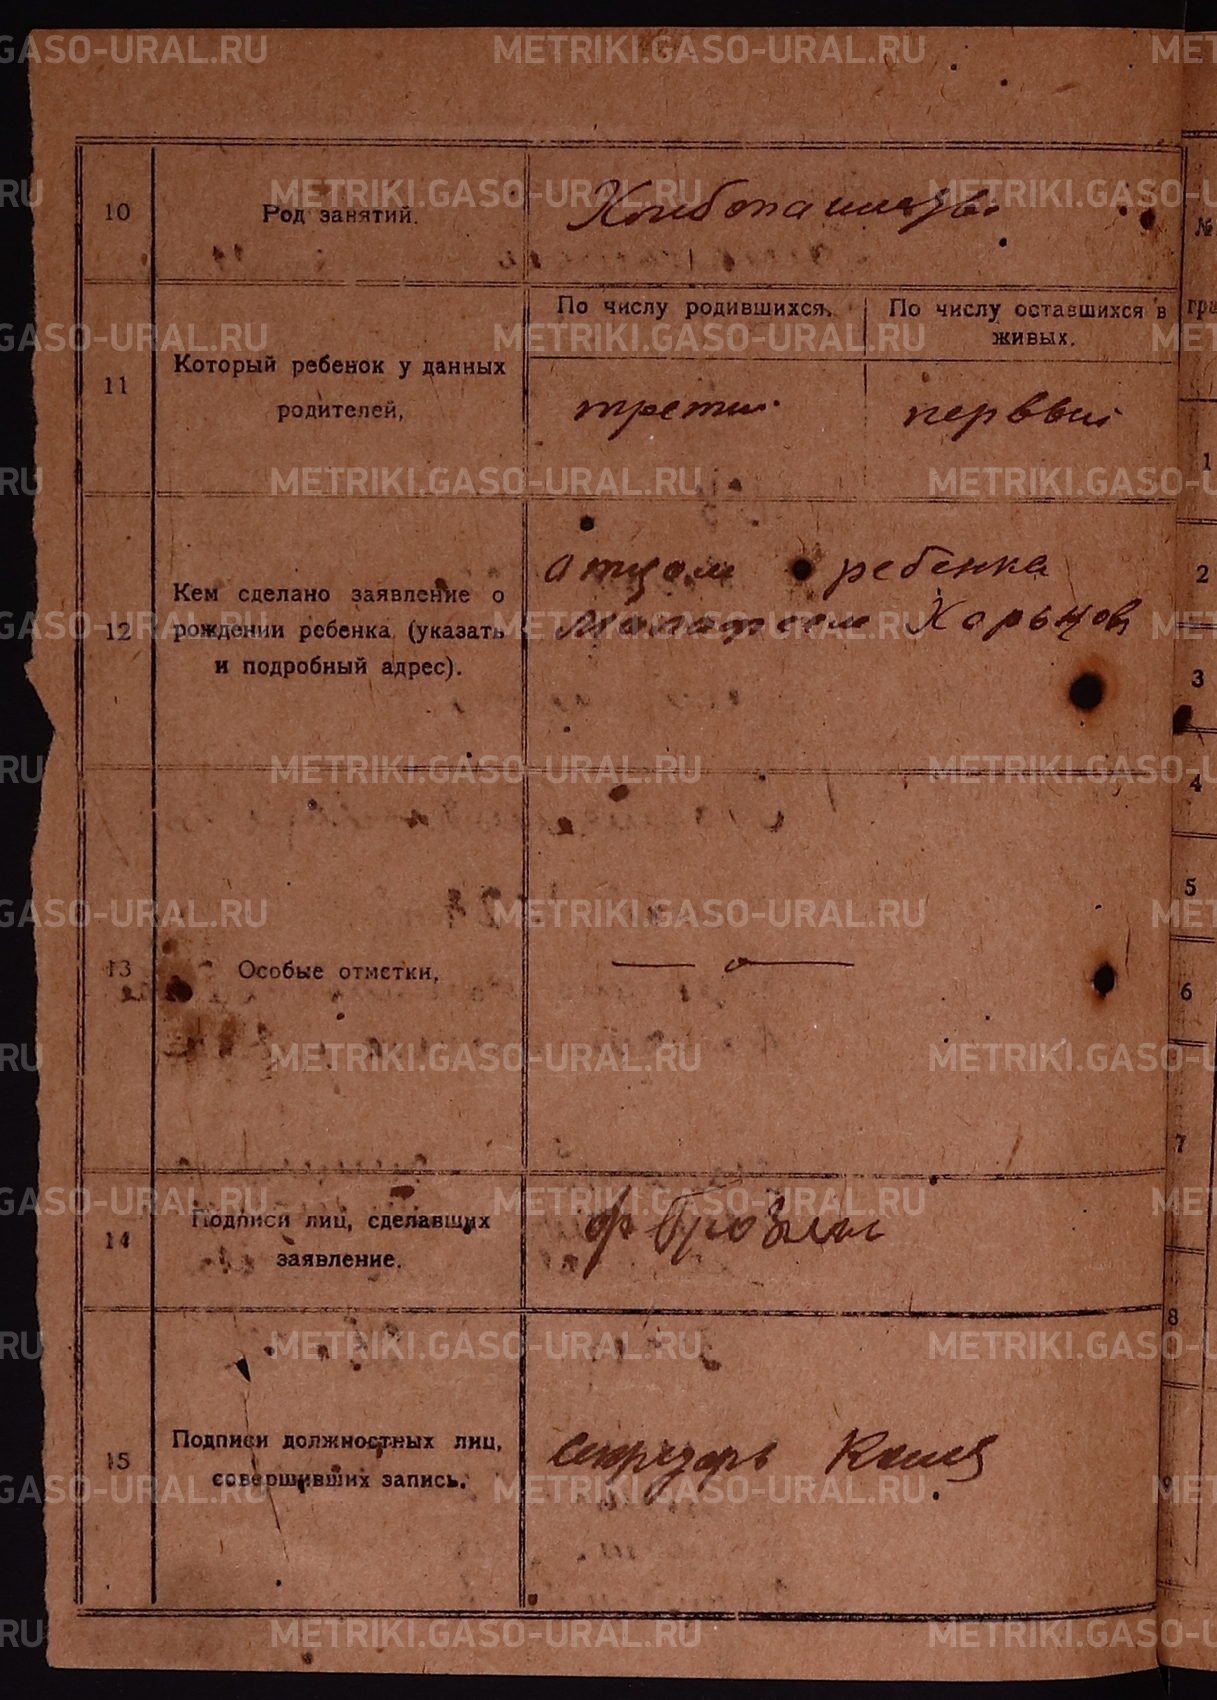 10
Род занятий.
11
Который ребенок у данных
родителей,
По числу родившихся,
По числу оставшихся в
живых.
третий
первый
12
Кем сделано заявление о
рождении ребенка (указать
и подробный адрес).
отцом ребенка
Харьков
13
Особые отметки,
14
Подписи лиц, сделавших
заявление.
15
Подписи должностных лиц,
совершивших запись.
№
гра
1
2
3
4
5
6
7
8
9
METRIKI.GASO-URAL.RU